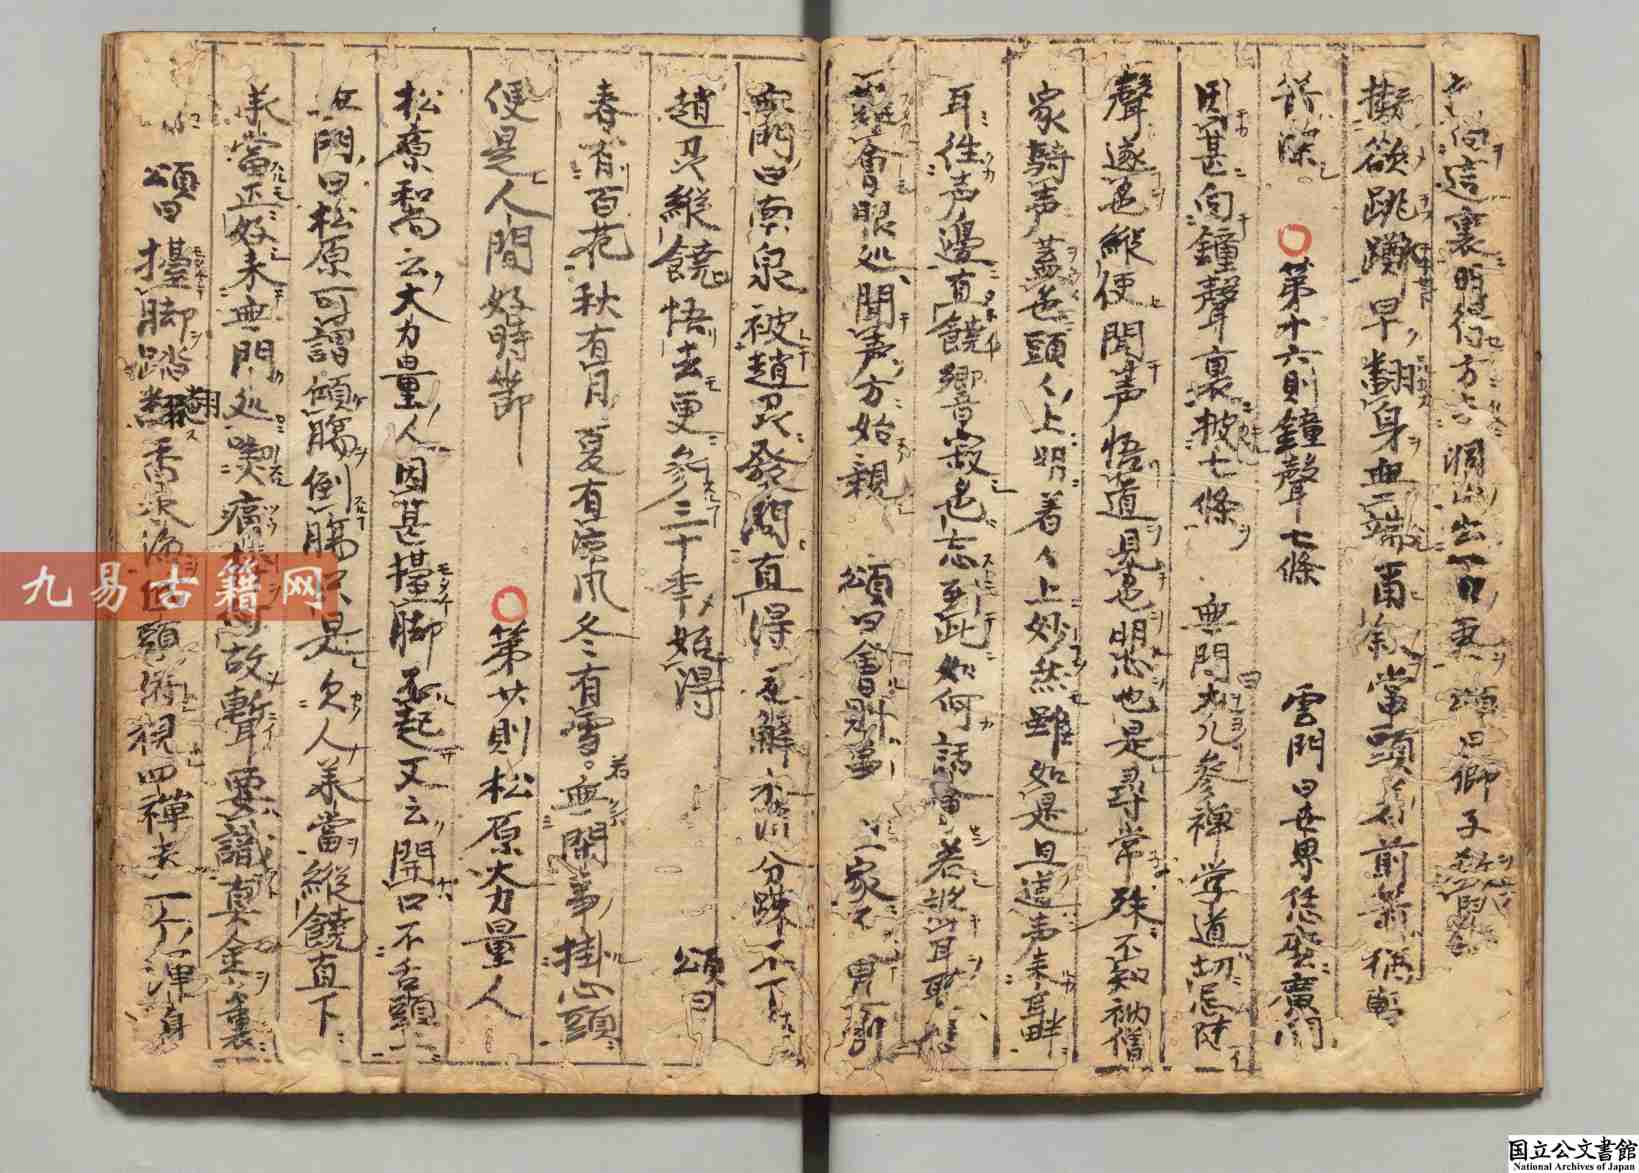 向這裏明得方知洞山出一口氣 頌曰獅子
擬欲跳躑早翻身無端再叙當頭着前箭猶輕
後箭深 ○第十六則鐘聲七條 雲門曰世界恁麼廣闊
因甚向鐘聲裏披七條 無門曰大凡參禅学道切忌随
聲逐色縦使聞声悟道見色明心也是尋常殊不知衲僧
家騎声蓋色頭々上明着々上妙然雖如是且道声来耳畔
耳往声邊直饒響寂色忘到此如何話會若将耳聴
難會眼処聞声方始親 頌曰會則事 一家不
無門曰南泉被趙州發問直得瓦解氷消分疎不下
趙州縦饒悟去更参三十年始得 頌曰
春有百花秋有月夏有涼風冬有雪若無閑事掛心頭
便是人間好時節 ○第廿則松原大力量人
松原和尚云大力量人因甚擡脚不起又云開口不舌頭
無門曰松原可謂傾腸倒腸只是欠人義當縦饒直下
義當正好来無門処喫痛棒何故聻要識真金火裏
頌曰擡脚踏翻香水海低頭俯視四禅天一个渾身
九易古籍网
国立公文書館
National Archives of Japan